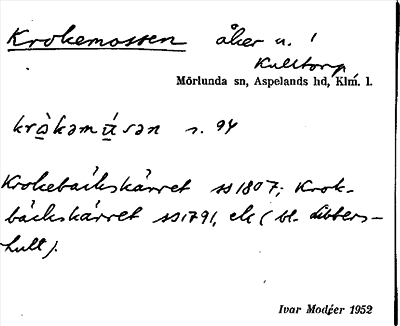 Krokemossen åker u. 1
Kulltorp
Mörlunda sn, Aspelands hd, Klm. l.
kròkəmúsən s. 94
Krokebäckskärret ss 1807; Krok-
bäckskärret ss 1791, ek (bl. Libbers-
hult).
Ivar Modéer 1952